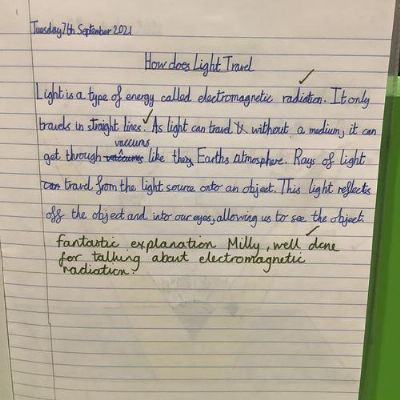 Tuesday 7th September 2021
How does Light Travel
Light is a type of energy called electromagnetic radiation. It only
travels in straight lines. As light can travel without a medium, it can
vaccums
get through like the Earths atmosphere. Rays of light
can travel from the light source onto an object. This light reflects
off the object and into our eyes, allowing us to see the object.
fantastic explanation Milly, well done
for talking about electromagnetic
radiation.